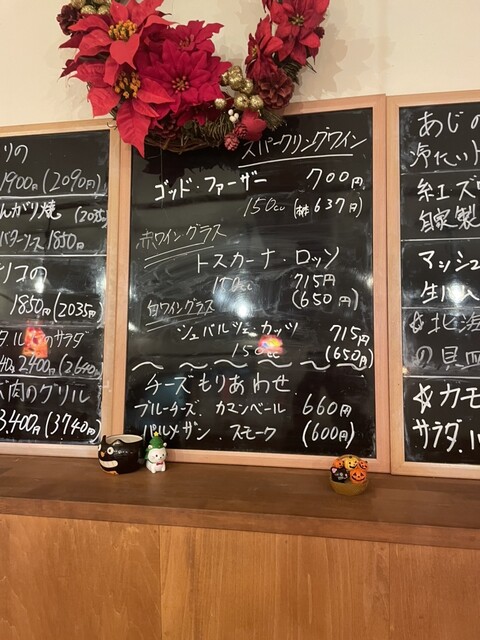 りの
1900円(2090円)
んがり焼
(2035
バターソース 1850円
リコの
1850円(2035円)
のサラダ
2400円(2640円)
肉のグリル
3,400円(3740円)
スパークリングワイン
ゴッド・ファーザー 700円
150cc (税抜 637円)
赤ワイングラス
トスカーナ・ロッソ
150cc 715円
(650円)
白ワイングラス
シュバルツェカッツ 715円
150cc (650円)
チーズもりあわせ
ブルーチーズ.カマンベール 660円
パルメザン.スモーク (600円)
あじの
冷たい
紅ズワ
自家製
マッシュ
生ハム
☆北海
の貝
☆カモ
サラダ.